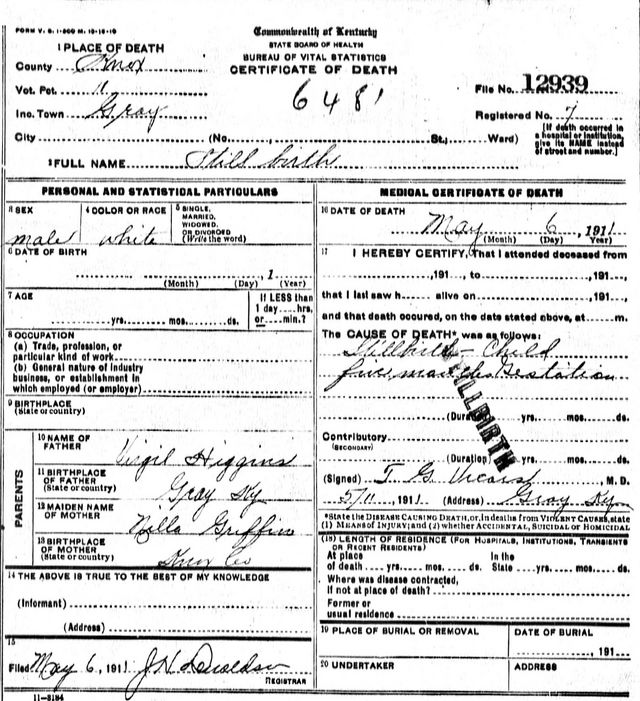 FORM V. S. 1-500 M. 10-16-10
Commonwealth of Kentucky
STATE BOARD OF HEALTH
BUREAU OF VITAL STATISTICS
CERTIFICATE OF DEATH
1 PLACE OF DEATH
County Knox
Vot. Pct. 11
Inc. Town Gray
City (No. St.; Ward)
6481
File No. 12939
Registered No. 7
[If death occurred in a hospital or institution, give its NAME instead of street and number.]
2 FULL NAME Still birth
PERSONAL AND STATISTICAL PARTICULARS
3 SEX
male
4 COLOR OR RACE
white
5 SINGLE, MARRIED, WIDOWED, OR DIVORCED (Write the word)
6 DATE OF BIRTH
, 1
(Month) (Day) (Year)
7 AGE
yrs. mos. ds.
If LESS than 1 day hrs. or min.?
8 OCCUPATION
(a) Trade, profession, or
particular kind of work
(b) General nature of industry
business, or establishment in
which employed (or employer)
9 BIRTHPLACE
(State or country)
PARENTS
10 NAME OF FATHER Virgil Higgins
11 BIRTHPLACE OF FATHER (State or country) Gray Ky
12 MAIDEN NAME OF MOTHER Griffin
13 BIRTHPLACE OF MOTHER (State or country) Knox Co
14 THE ABOVE IS TRUE TO THE BEST OF MY KNOWLEDGE
(Informant)
(Address)
15
Filed May 6, 1911 J H Donaldson
REGISTRAR
11-3184
MEDICAL CERTIFICATE OF DEATH
16 DATE OF DEATH
May 6, 1911
(Month) (Day) Year)
17 I HEREBY CERTIFY, That I attended deceased from
, 191 , to , 191 ,
that I last saw h alive on , 191 ,
and that death occurred, on the date stated above, at m.
The CAUSE OF DEATH* was as follows:
Stillbirth - Child
five months Gestation
STILLBIRTH
(Duration) yrs. mos. ds.
Contributory
(SECONDARY)
(Duration) yrs. mos. ds.
(Signed) T G , M. D.
5/11, 1911 (Address) Gray Ky
*State the DISEASE CAUSING DEATH, or, in deaths from VIOLENT CAUSES, state
(1) MEANS OF INJURY; and (2) whether ACCIDENTAL, SUICIDAL or HOMICIDAL
(18) LENGTH OF RESIDENCE (FOR HOSPITALS, INSTITUTIONS, TRANSIENTS
OR RECENT RESIDENTS)
At place of death yrs. mos. ds. In the State yrs. mos. ds.
Where was disease contracted,
If not at place of death?
Former or
usual residence
19 PLACE OF BURIAL OR REMOVAL
DATE OF BURIAL
, 191
20 UNDERTAKER
ADDRESS